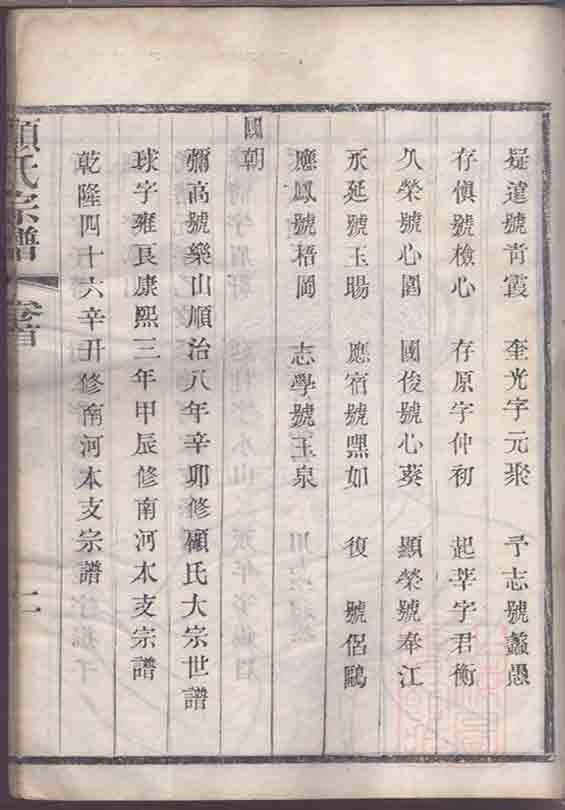 疑達號青霞 奎光字元聚 予志號蠡愚
存愼號檢心 存原字仲初 起莘字君衡
久榮號心圍 國俊號心葵 顯榮號奉江
永延號玉暘 應宿號嘿如 復 號侶鷗
應鳳號梧岡 志學號玉泉
國朝
彌高號樂山順治八年辛卯修顧氏大宗世譜
球字雍艮康熙三年甲辰修南河本支宗譜
乾隆四十六辛丑修南河本支宗譜
顧氏宗譜 卷首 二